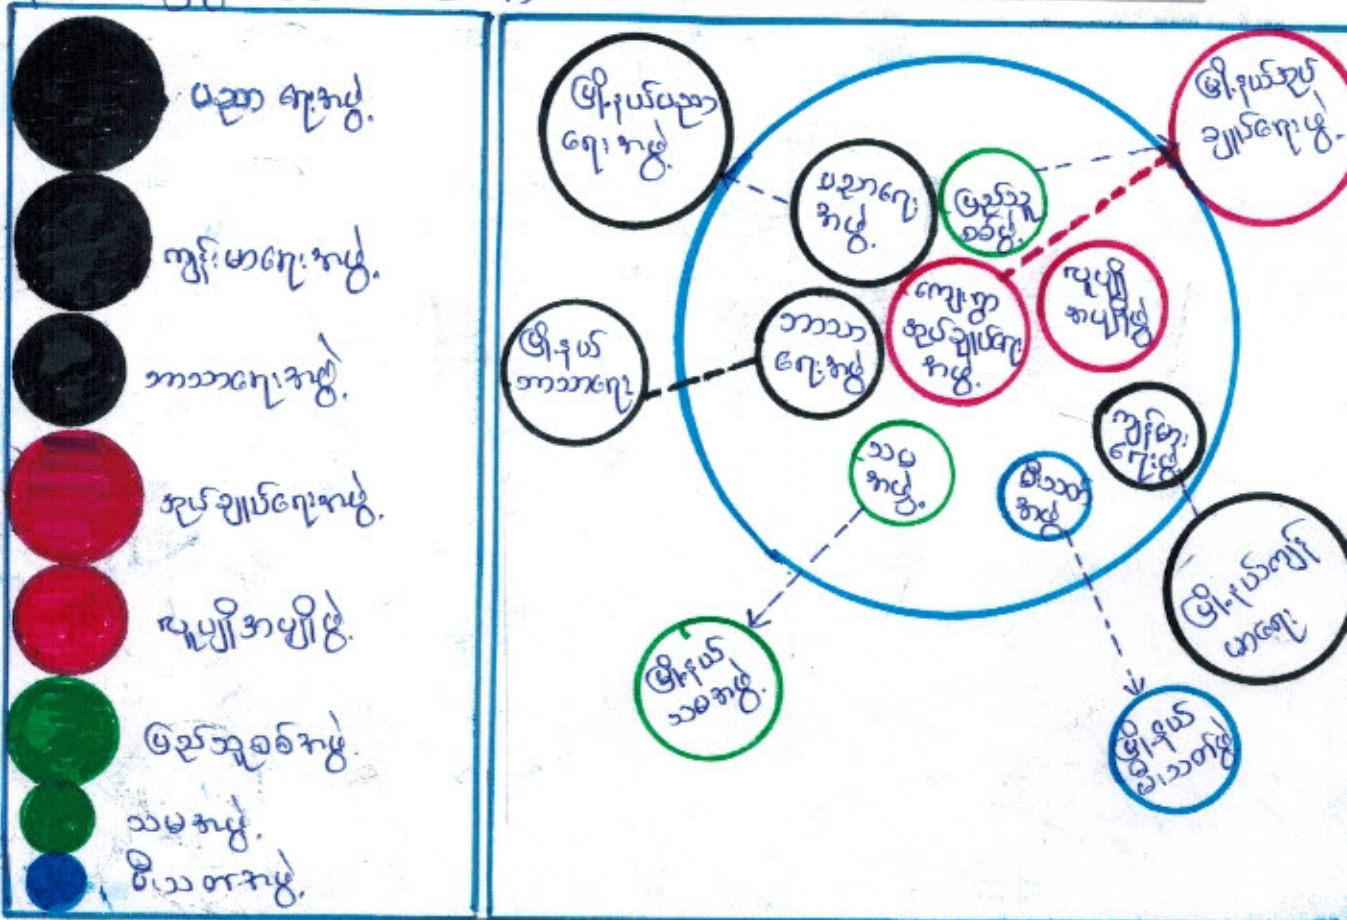 ပညာရေးအဖွဲ့
ကျန်းမာရေးအဖွဲ့
ဘာသာရေးအဖွဲ့
အုပ်ချုပ်ရေးအဖွဲ့
လူပျိုအပျိုဖွဲ့
ပြည်သူ့စစ်အဖွဲ့
သမအဖွဲ့
မီးသတ်အဖွဲ့
မြို့နယ်ပညာ
ရေးအဖွဲ့
ပညာရေး
အဖွဲ့
ပြည်သူ့
စစ်ဖွဲ့
မြို့နယ်အုပ်
ချုပ်ရေးဖွဲ့
မြို့နယ်
ဘာသာရေး
ဘာသာ
ရေးအဖွဲ့
ကျေးရွာ
အုပ်ချုပ်ရေး
အဖွဲ့
လူပျို
အပျိုဖွဲ့
ကျန်းမာ
ရေးဖွဲ့
သမ
အဖွဲ့
မီးသတ်
အဖွဲ့
မြို့နယ်ကျန်း
မာရေး
မြို့နယ်
သမအဖွဲ့
မြို့နယ်
မီးသတ်ဖွဲ့